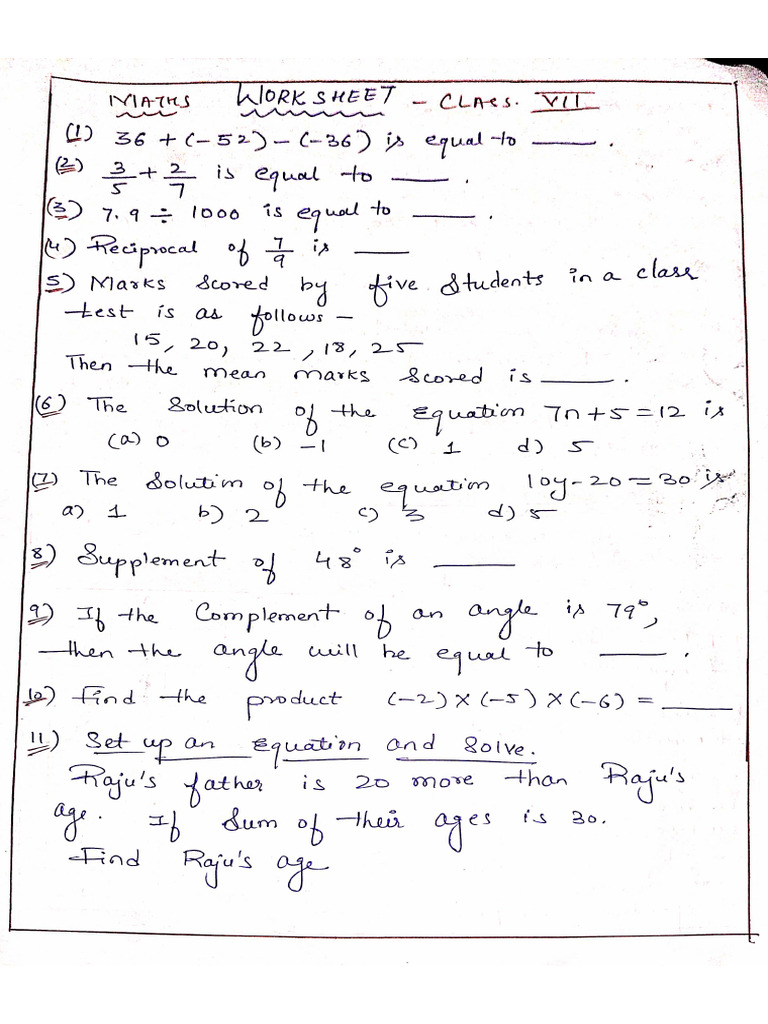 MATHS WORKSHEET - CLAss. VII
(1) 36 + (-52) - (-36) is equal to ____ .
(2) 3/5 + 2/7 is equal to ____ .
(3) 7.9 ÷ 1000 is equal to ____ .
(4) Reciprocal of 7/9 is ____
5) Marks scored by five students in a class
test is as follows -
15, 20, 22, 18, 25
Then the mean marks scored is ____ .
(6) The solution of the equation 7n+5=12 is
(a) 0 (b) -1 (c) 1 d) 5
(7) The solution of the equation 10y-20=30 is
a) 1 b) 2 c) 3 d) 5
8) Supplement of 48° is ____
9) If the Complement of an angle is 79°,
then the angle will be equal to ____ .
10) Find the product (-2) × (-5) × (-6) = ____
11) Set up an equation and solve.
Raju's father is 20 more than Raju's
age. If sum of their ages is 30.
Find Raju's age